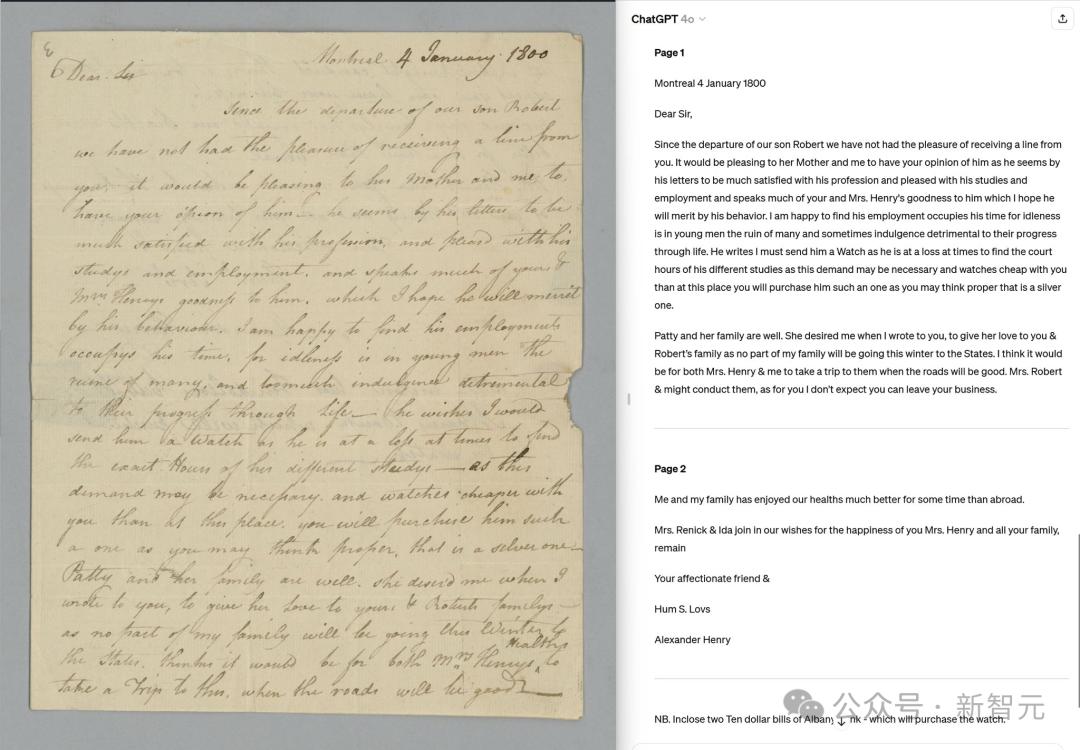 Montreal 4 January 1800
Dear Sir
Since the departure of our son Robert
we have not had the pleasure of receiving a line from
you. it would be pleasing to his Mother and me, to
have your opion of him — he seems by his letters to be
much satisfied with his profession, and pleasd with his
studys and employment. and speaks much of yours &
Mrs Henrys goodness to him. which I hope he will merrit
by his behaviour. I am happy to find his employments
occupys his time. for idleness is in young men the
ruine of many, and toomuch indulgence detrimental
to their progress through Life — he wishes I would
send him a Watch as he is at a loss at times to find
the exact Hours of his different studys — as this
demand may be necessary. and watches cheaper with
you than at this place. you will purchase him such
a one as you may think proper, that is a silver one —
Patty and her family are well. she desird me when I
wrote to you, to give her Love to yours & Roberts familys —
as no part of my family will be going this Winter to
the States. thinks it would be for both Mrs Henrys Healths to
take a Trip to this, when the roads will be good
ChatGPT 4o
Page 1
Montreal 4 January 1800
Dear Sir,
Since the departure of our son Robert we have not had the pleasure of receiving a line from
you. It would be pleasing to her Mother and me to have your opinion of him as he seems by
his letters to be much satisfied with his profession and pleased with his studies and
employment and speaks much of your and Mrs. Henry's goodness to him which I hope he
will merit by his behavior. I am happy to find his employment occupies his time for idleness
is in young men the ruin of many and sometimes indulgence detrimental to their progress
through life. He writes I must send him a Watch as he is at a loss at times to find the court
hours of his different studies as this demand may be necessary and watches cheap with you
than at this place you will purchase him such an one as you may think proper that is a silver
one.
Patty and her family are well. She desired me when I wrote to you, to give her love to you &
Robert's family as no part of my family will be going this winter to the States. I think it would
be for both Mrs. Henry & me to take a trip to them when the roads will be good. Mrs. Robert
& might conduct them, as for you I don't expect you can leave your business.
Page 2
Me and my family has enjoyed our healths much better for some time than abroad.
Mrs. Renick & Ida join in our wishes for the happiness of you Mrs. Henry and all your family,
remain
Your affectionate friend &
Hum S. Lovs
Alexander Henry
NB. Inclose two Ten dollar bills of Albany nk - which will purchase the watch.
公众号·新智元